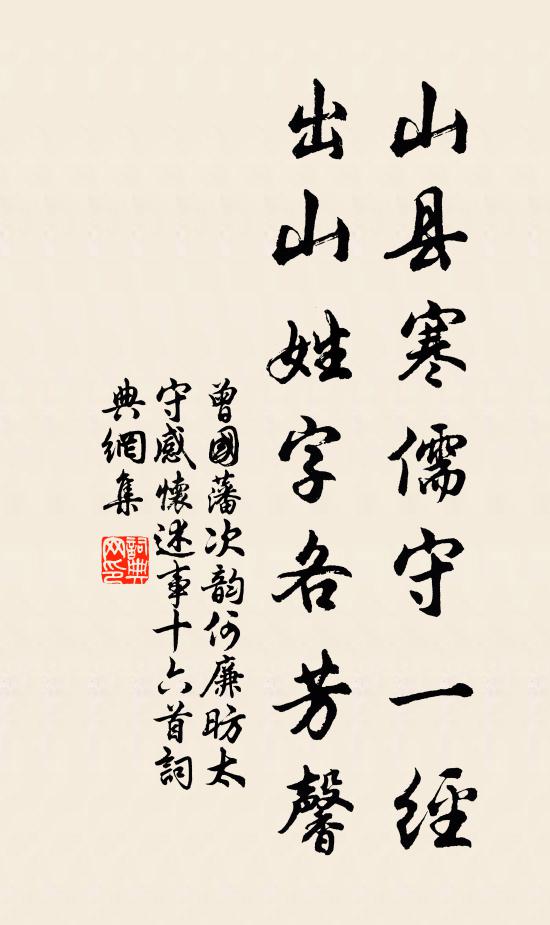 山县寒儒守一經
出山姓字各芳馨
曾國藩次韵何廉昉太
守感懷述事十六首詞
典網集
詞典
网印